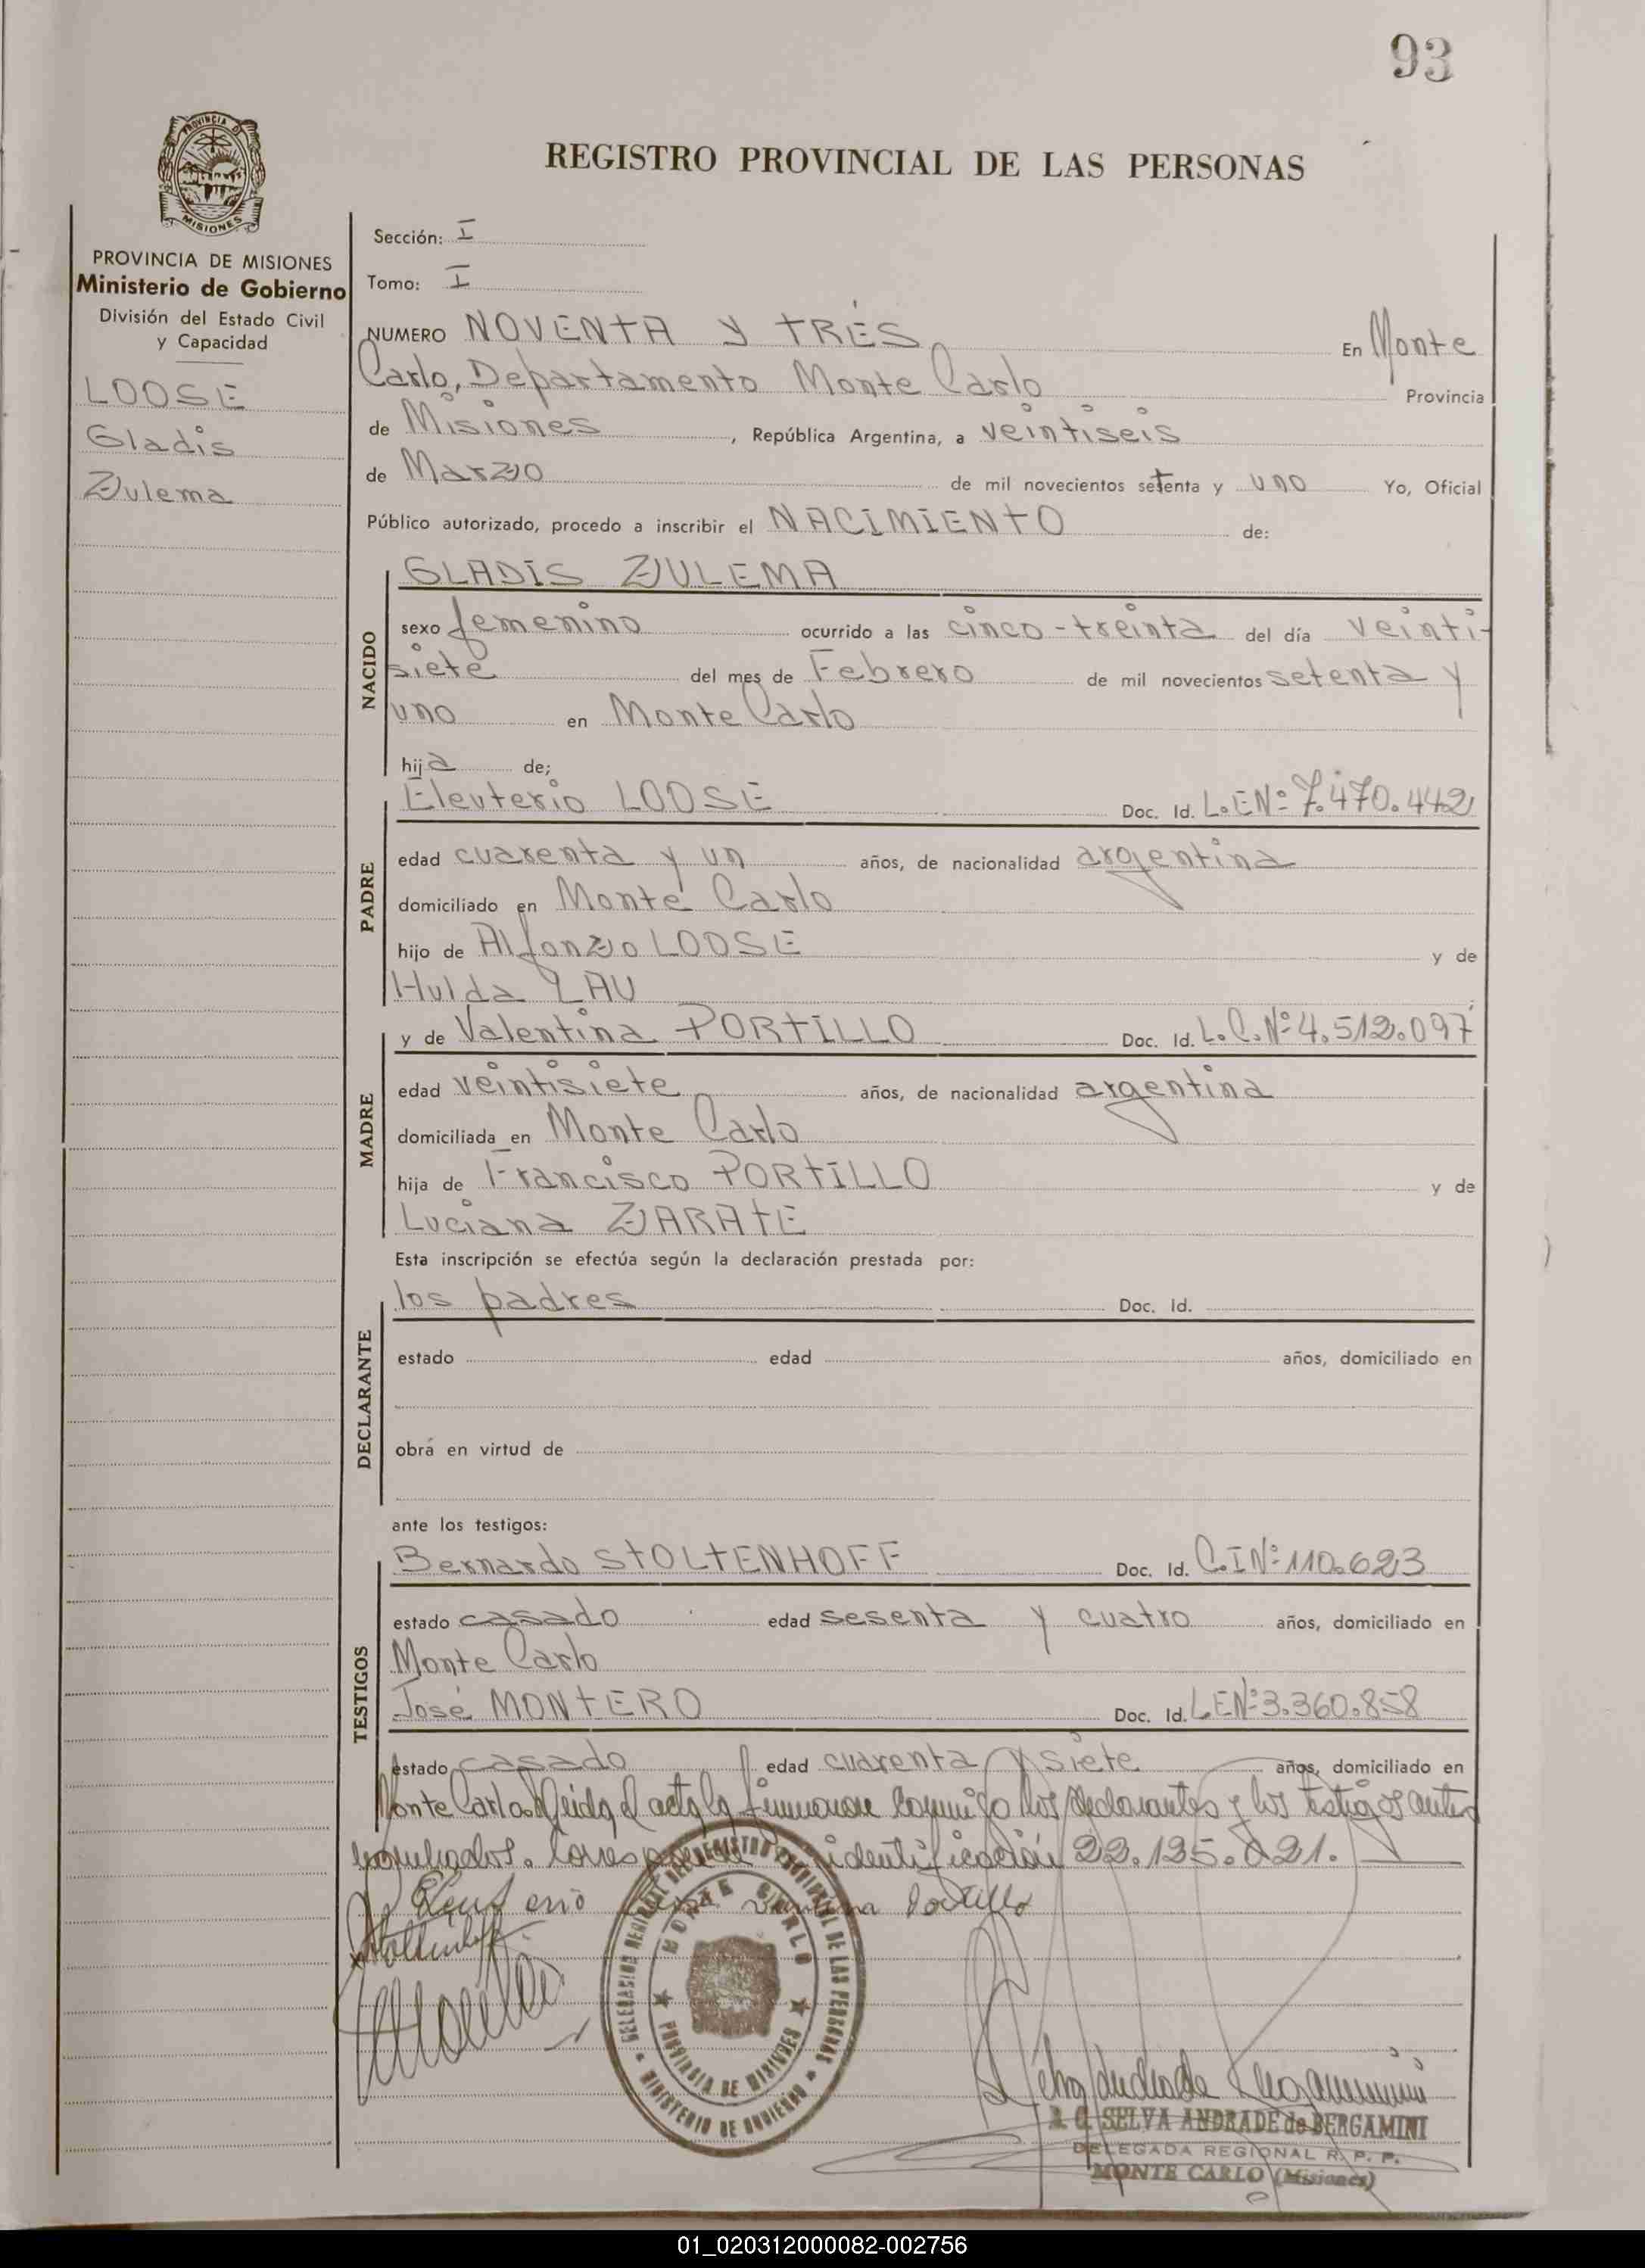 93
PROVINCIA DE
MISIONES
REGISTRO PROVINCIAL DE LAS PERSONAS
PROVINCIA DE MISIONES
Ministerio de Gobierno
División del Estado Civil
y Capacidad
LOOSE
Gladis
Zulema
Sección: I
Tomo: I
NUMERO NOVENTA Y TRÉS En Monte
Carlo, Departamento Monte Carlo Provincia
de Misiones, República Argentina, a veintiseis
de Marzo de mil novecientos setenta y uno Yo, Oficial
Público autorizado, procedo a inscribir el NACIMIENTO de:
NACIDO
GLADIS ZULEMA
sexo femenino ocurrido a las cinco-treinta del día veinti-
siete del mes de Febrero de mil novecientos setenta y
uno en Monte Carlo
hija de;
PADRE
Eleuterio LOOSE Doc. Id. L.ENº 7.470.442
edad cuarenta y un años, de nacionalidad argentina
domiciliado en Monte Carlo
hijo de Alfonzo LOOSE y de
Hulda LAU
MADRE
y de Valentina PORTILLO Doc. Id. L.C.Nº 4.512.097
edad veintisiete años, de nacionalidad argentina
domiciliada en Monte Carlo
hija de Francisco PORTILLO y de
Luciana ZARATE
Esta inscripción se efectúa según la declaración prestada por:
DECLARANTE
los padres Doc. Id.
estado edad años, domiciliado en
obra en virtud de
ante los testigos:
TESTIGOS
Bernardo STOLTENHOFF Doc. Id. C.INº 110.623
estado casado edad sesenta y cuatro años, domiciliado en
Monte Carlo
José MONTERO Doc. Id. LENº 3.360.858
estado casado edad cuarenta y siete años, domiciliado en
Monte Carlo. Leida el acta la firmaron conmigo los declarantes y los testigos antes
nombrados. identificación 22.125.021.
Portillo
DELEGACION REGIONAL DEL REGISTRO PROVINCIAL DE LAS PERSONAS
MONTE CARLO
PROVINCIA DE MISIONES
MINISTERIO DE GOBIERNO
SELVA ANDRADE de BERGAMINI
DELEGADA REGIONAL R. P. P.
MONTE CARLO (Misiones)
01_020312000082-002756